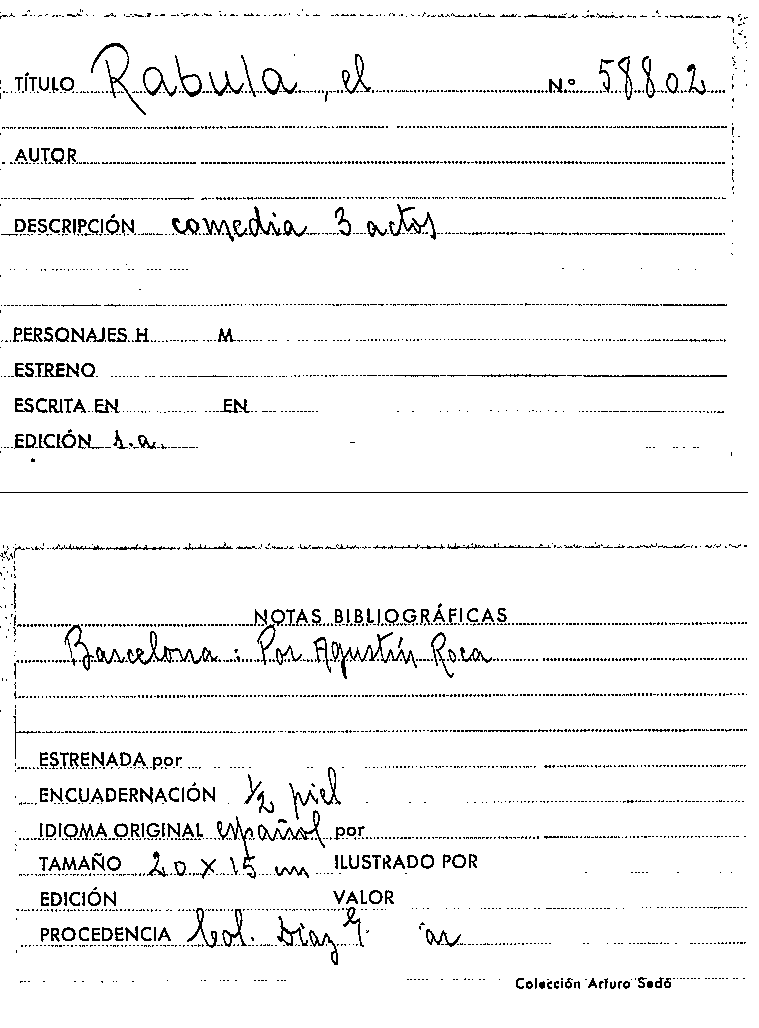 TÍTULO Rabula, el Nº 58802
AUTOR
DESCRIPCIÓN comedia 3 actos
PERSONAJES H M
ESTRENO
ESCRITA EN EN
EDICIÓN s.a.
NOTAS BIBLIOGRÁFICAS
Barcelona : Por Agustín Roca
ESTRENADA por
ENCUADERNACIÓN 1/2 piel
IDIOMA ORIGINAL español por
TAMAÑO 20 x 15 cm ILUSTRADO POR
EDICIÓN VALOR
PROCEDENCIA Col. Díaz
Colección Arturo Sedó